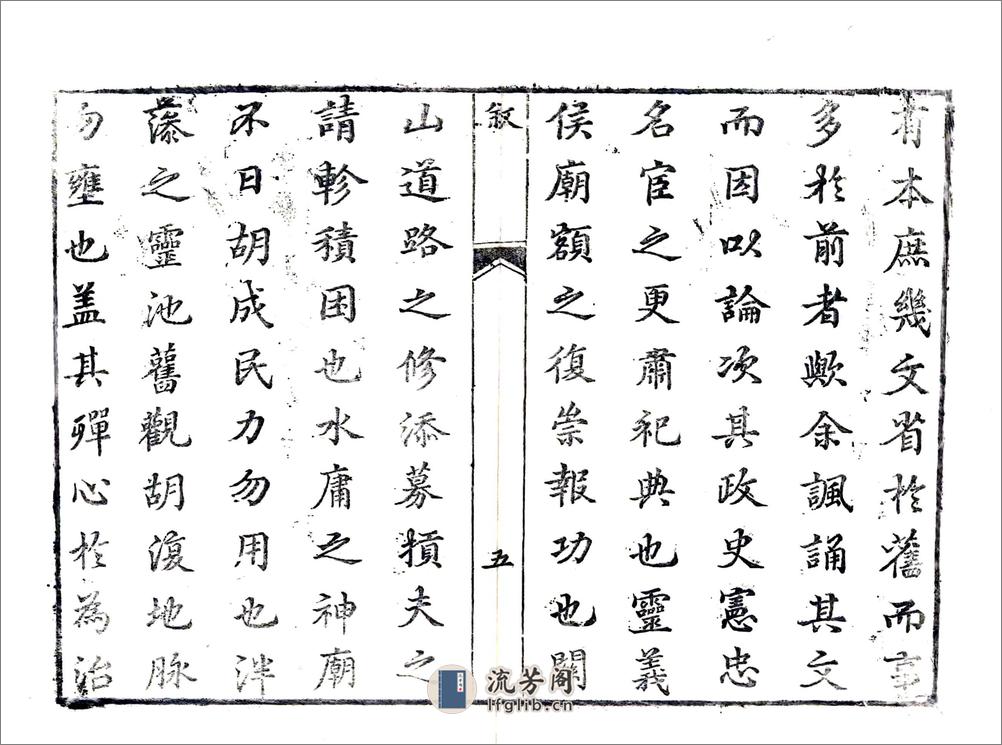 有本庶幾文省於舊而事
多於前者歟余諷誦其文
而因以論次其政史憲忠
名宦之更肅祀典也靈義
侯廟額之復崇報功也關
叙
五
山道路之修添募損夫之
請軫積困也水庸之神廟
不日胡成民力勿用也泮
藻之靈池舊觀胡復地脉
勿壅也盖其殫心於為治
流芳阁
lfglib.cn